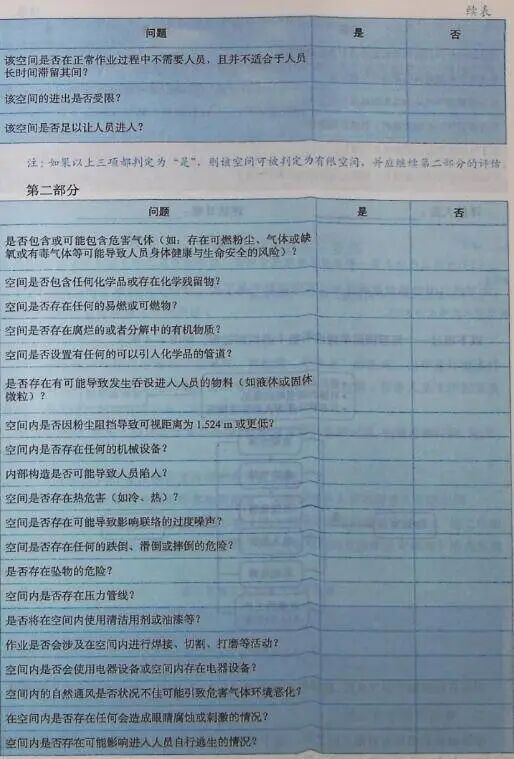 续表
问题 是 否
该空间是否在正常作业过程中不需要人员，且并不适合于人员
长时间滞留其间？
该空间的进出是否受限？
该空间是否足以让人员进人？
注：如果以上三项都判定为“是”，则该空间可被判定为有限空间，并应继续第二部分的评估
第二部分
问题 是 否
是否包含或可能包含危害气体（如：存在可燃粉尘、气体或缺
氧或有毒气体等可能导致人员身体健康与生命安全的风险）？
空间是否包含任何化学品或存在化学残留物？
空间是否存在任何的易燃或可燃物？
空间是否存在腐烂的或者分解中的有机物质？
空间是否设置有任何的可以引人化学品的管道？
是否存在有可能导致发生吞没进人人员的物料（如液体或固体
微粒）？
空间内是否因粉尘阻挡导致可视距离为 1.524 m 或更低？
空间内是否存在任何的机械设备？
内部构造是否可能导致人员陷人？
空间是否存在热危害（如冷、热）？
空间是否存在可能导致影响联络的过度噪声？
空间是否存在任何的跌倒、滑倒或摔倒的危险？
是否存在坠物的危险？
空间内是否存在压力管线？
是否将在空间内使用清洁用剂或油漆等？
作业是否会涉及在空间内进行焊接、切割、打磨等活动？
空间内是否会使用电器设备或空间内存在电器设备？
空间内的自然通风是否状况不佳可能引致危害气体环境恶化？
在空间内是否存在任何会造成眼睛腐蚀或刺激的情况？
空间内是否存在可能影响进人人员自行逃生的情况？